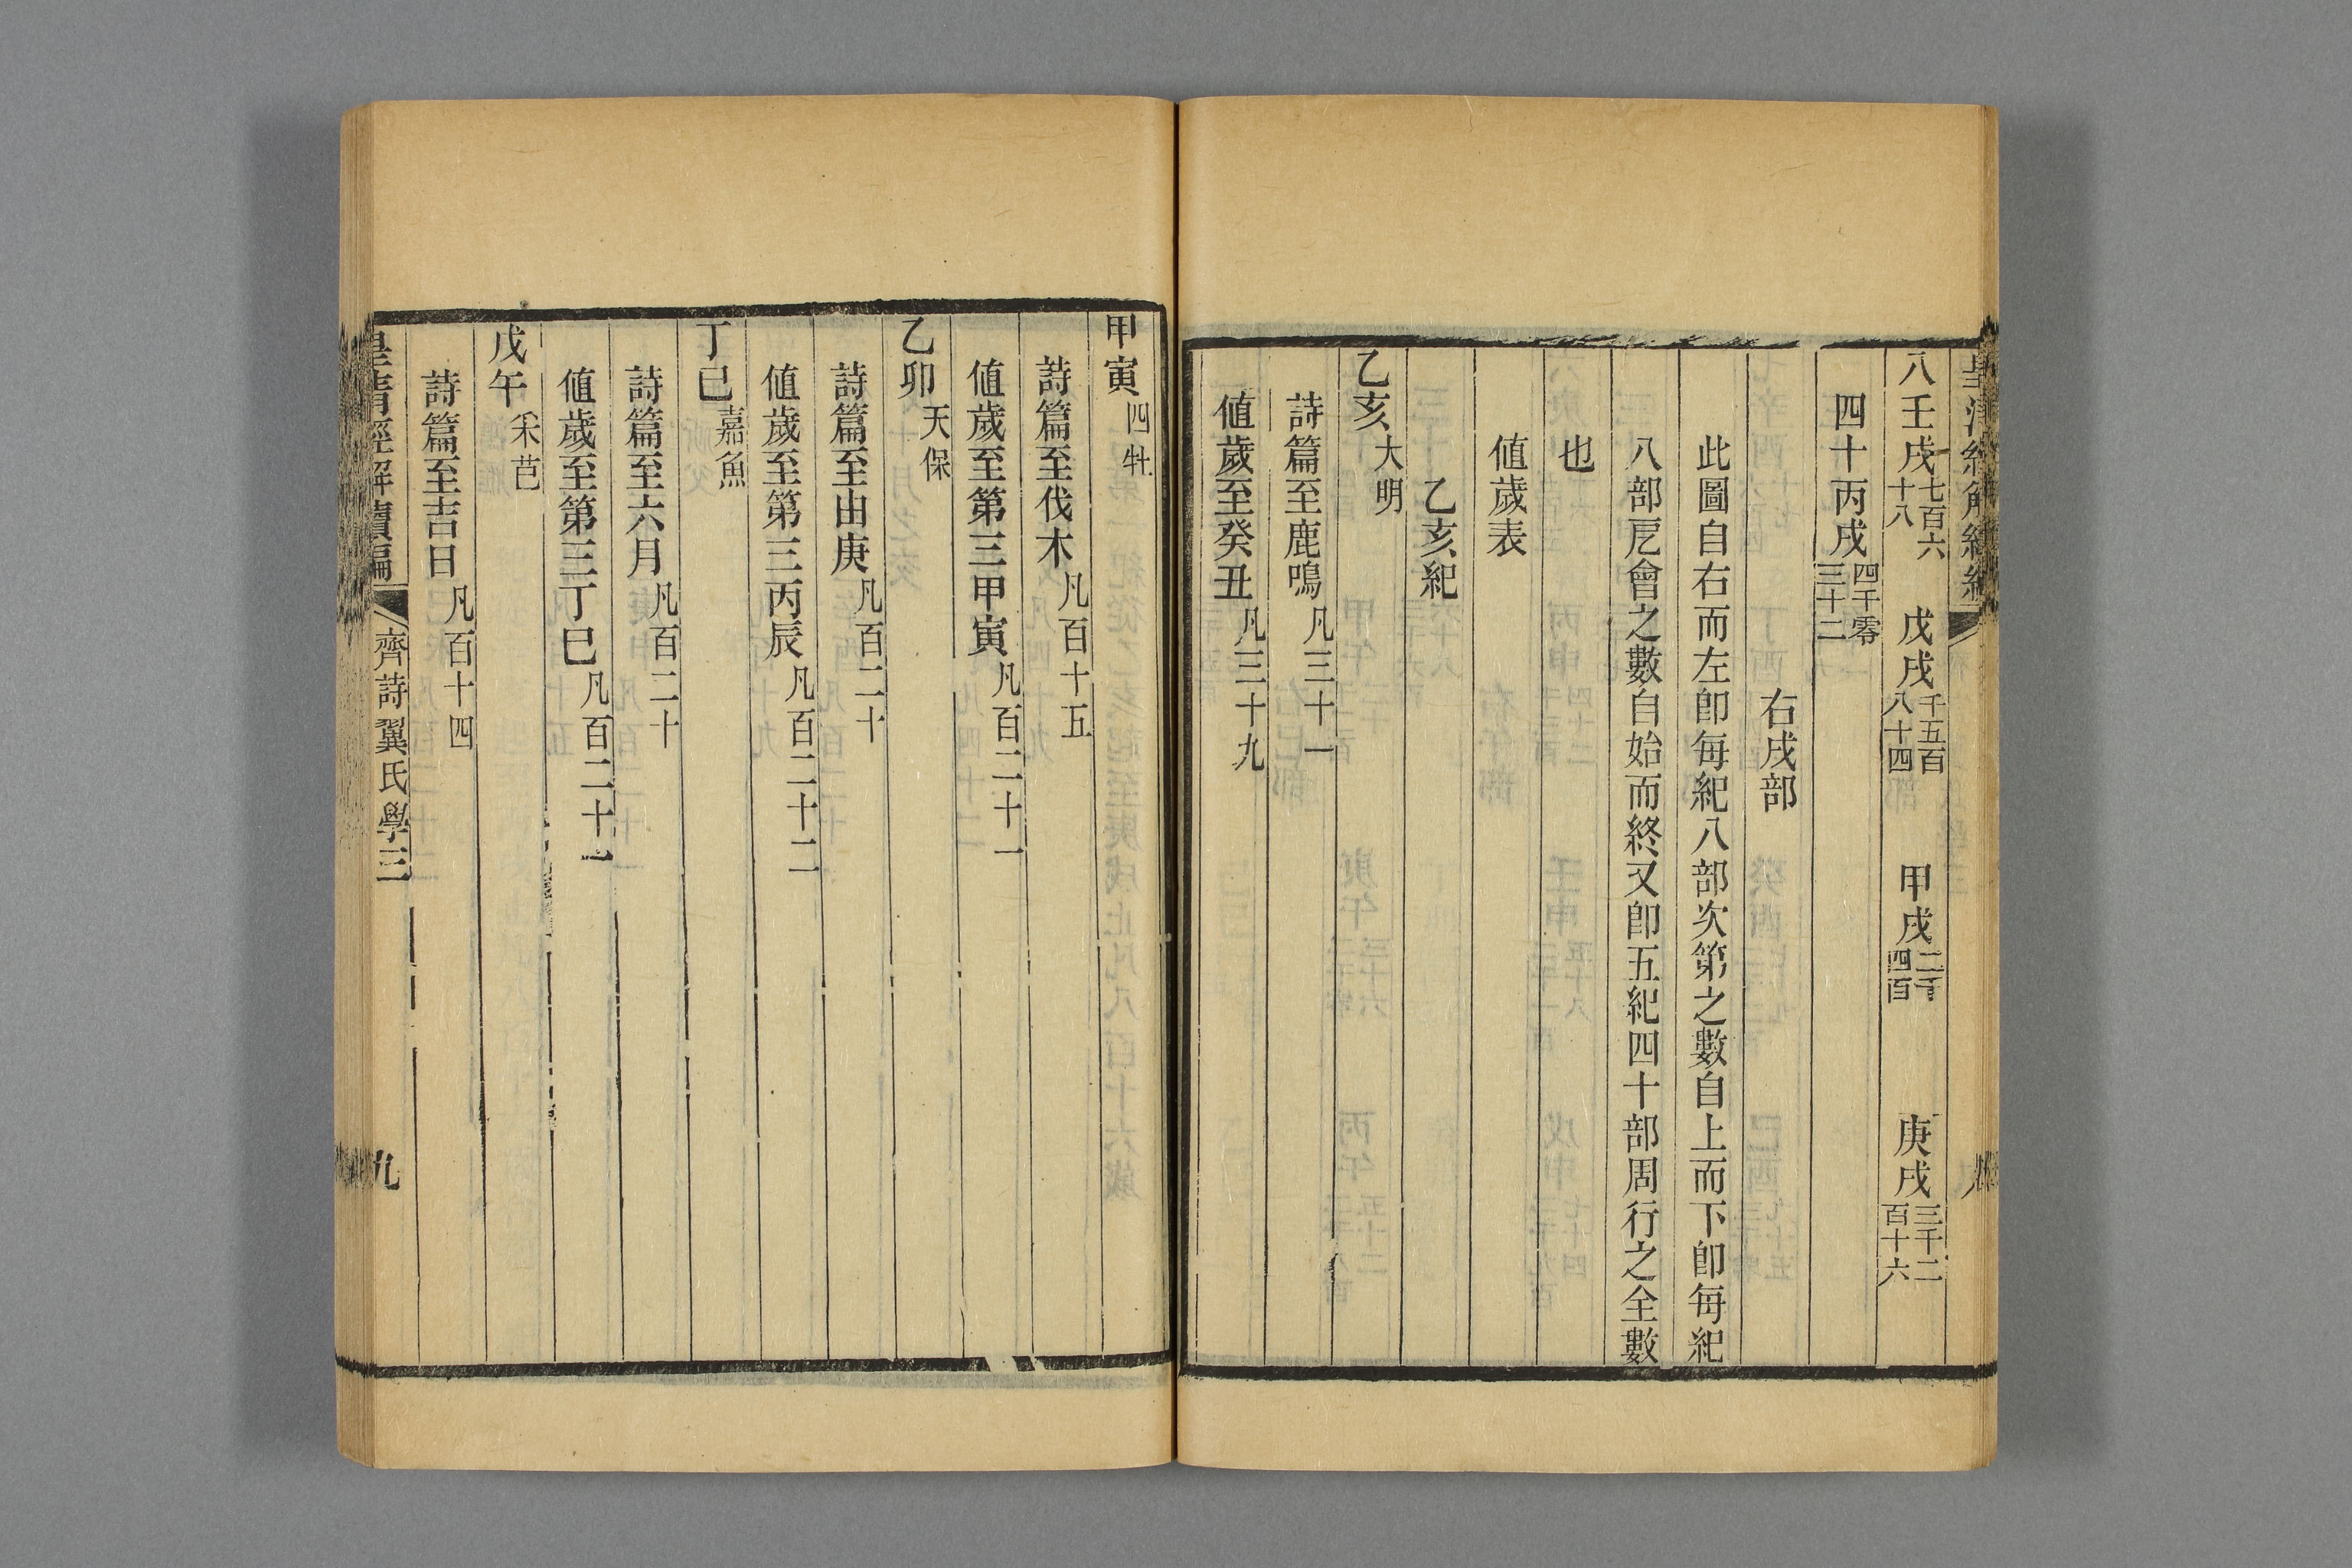 八壬戌七百六十八　戊戌千五百八十四　甲戌二千四百　庚戌三千二百十六
四十丙戌四千零三十二
右戌部
此圖自右而左卽每紀八部次第之數自上而下卽每紀
八部戹會之數自始而終又卽五紀四十部周行之全數
也
値歲表
乙亥紀
乙亥大明
詩篇至鹿鳴凡三十一
値歲至癸丑凡三十九
甲寅四牡
詩篇至伐木凡百十五
値歲至第三甲寅凡百二十一
乙卯天保
詩篇至由庚凡百二十
値歲至第三丙辰凡百二十二
丁巳嘉魚
詩篇至六月凡百二十
値歲至第三丁巳凡百二十一
戊午采芑
詩篇至吉日凡百十四
皇淸經解續編　齊詩翼氏學三　九